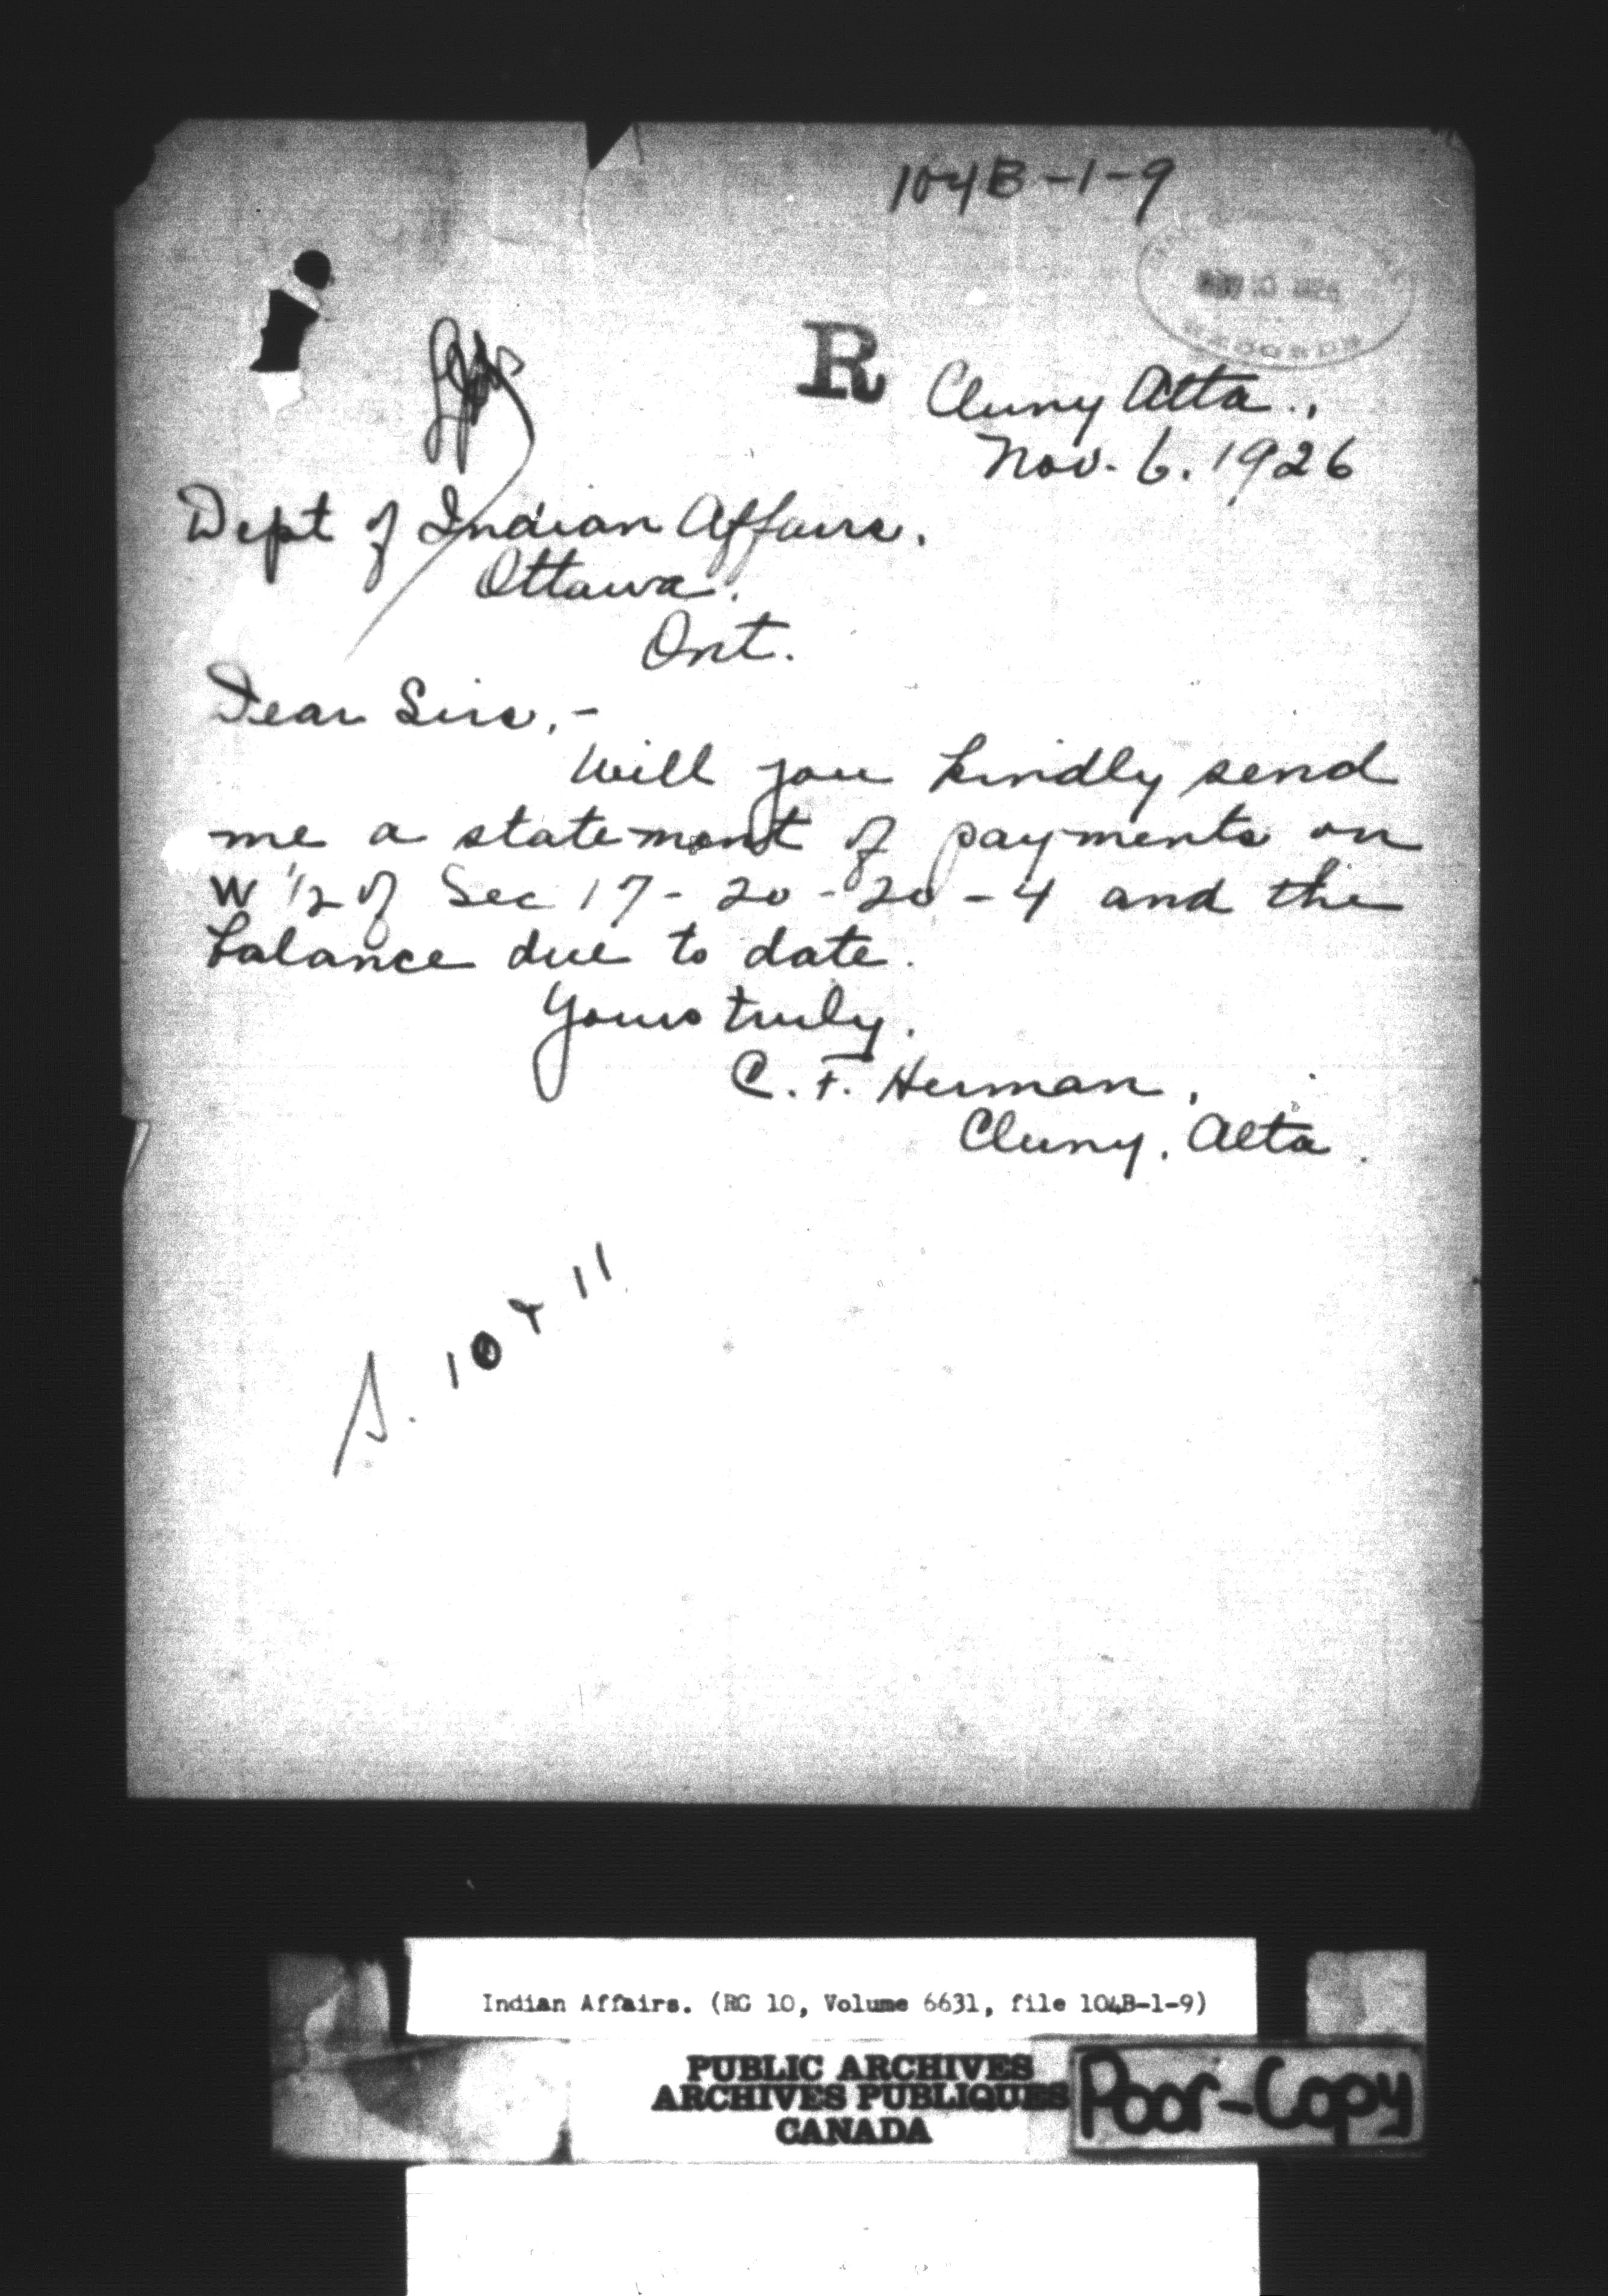 104B-1-9
RECORDS
R
Cluny Alta.,
Nov. 6. 1926
Dept of Indian Affairs.
Ottawa.
Ont.
Dear Sirs,-
Will you kindly send
me a statement of payments on
W 1/2 of Sec 17-20-20-4 and the
balance due to date.
Yours truly.
C. F. Herman,
Cluny, Alta.
S. 10 + 11
Indian Affairs. (RG 10, Volume 6631, file 104B-1-9)
PUBLIC ARCHIVES
ARCHIVES PUBLIQUES
CANADA
Poor-Copy